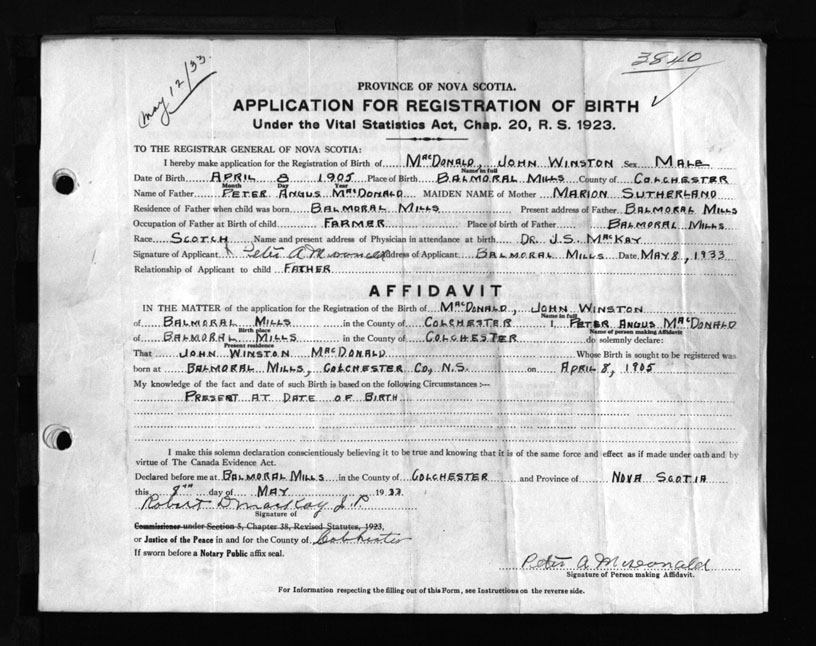 May 12/33.
3840
PROVINCE OF NOVA SCOTIA.
APPLICATION FOR REGISTRATION OF BIRTH
Under the Vital Statistics Act, Chap. 20, R. S. 1923.
TO THE REGISTRAR GENERAL OF NOVA SCOTIA:
I hereby make application for the Registration of Birth of MacDonald, John Winston Sex Male
Name in full
Date of Birth April 8 1905 Place of Birth Balmoral Mills County of Colchester
Month Day Year
Name of Father Peter Angus MacDonald MAIDEN NAME of Mother Marion Sutherland
Residence of Father when child was born Balmoral Mills Present address of Father Balmoral Mills
Occupation of Father at Birth of child Farmer Place of birth of Father Balmoral Mills
Race Scotch Name and present address of Physician in attendance at birth Dr. J.S. MacKay
Signature of Applicant Peter A McDonald Address of Applicant Balmoral Mills Date May 8, 1933
Relationship of Applicant to child Father
AFFIDAVIT
IN THE MATTER of the application for the Registration of the Birth of MacDonald, John Winston
Name in full
of Balmoral Mills in the County of Colchester I, Peter Angus MacDonald
Birth place Name of person making Affidavit
of Balmoral Mills in the County of Colchester do solemnly declare:
Present residence
That John Winston MacDonald Whose Birth is sought to be registered was
born at Balmoral Mills, Colchester Co, N.S. on April 8, 1905
My knowledge of the fact and date of such Birth is based on the following Circumstances :--
Present at date of birth
I make this solemn declaration conscientiously believing it to be true and knowing that it is of the same force and effect as if made under oath and by
virtue of The Canada Evidence Act.
Declared before me at Balmoral Mills in the County of Colchester and Province of Nova Scotia
this 8th day of May 1933.
Robert D MacKay J.P.
Signature of
Commissioner under Section 5, Chapter 38, Revised Statutes, 1923,
or Justice of the Peace in and for the County of Colchester
If sworn before a Notary Public affix seal.
Peter A McDonald
Signature of Person making Affidavit.
For Information respecting the filling out of this Form, see Instructions on the reverse side.